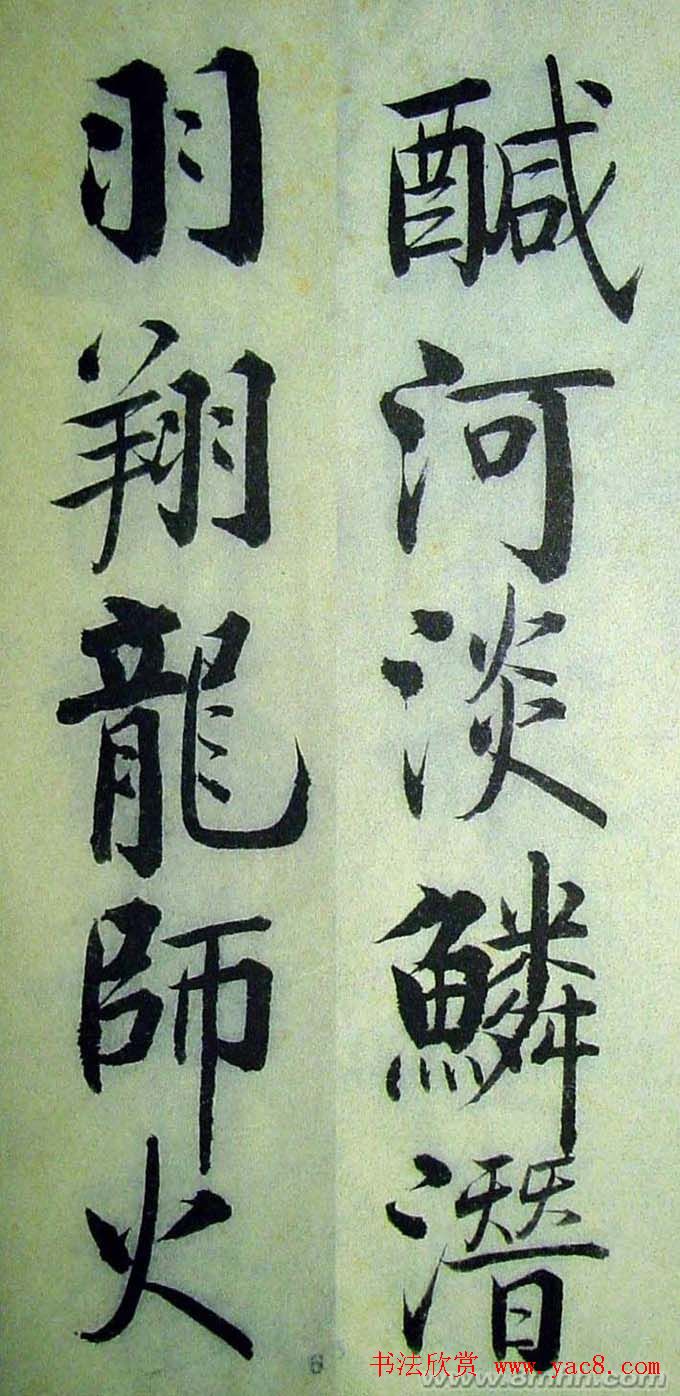 醎河淡鱗潛
羽翔龍師火
6
书法欣赏 www.yac8.com
www.8mhh.com